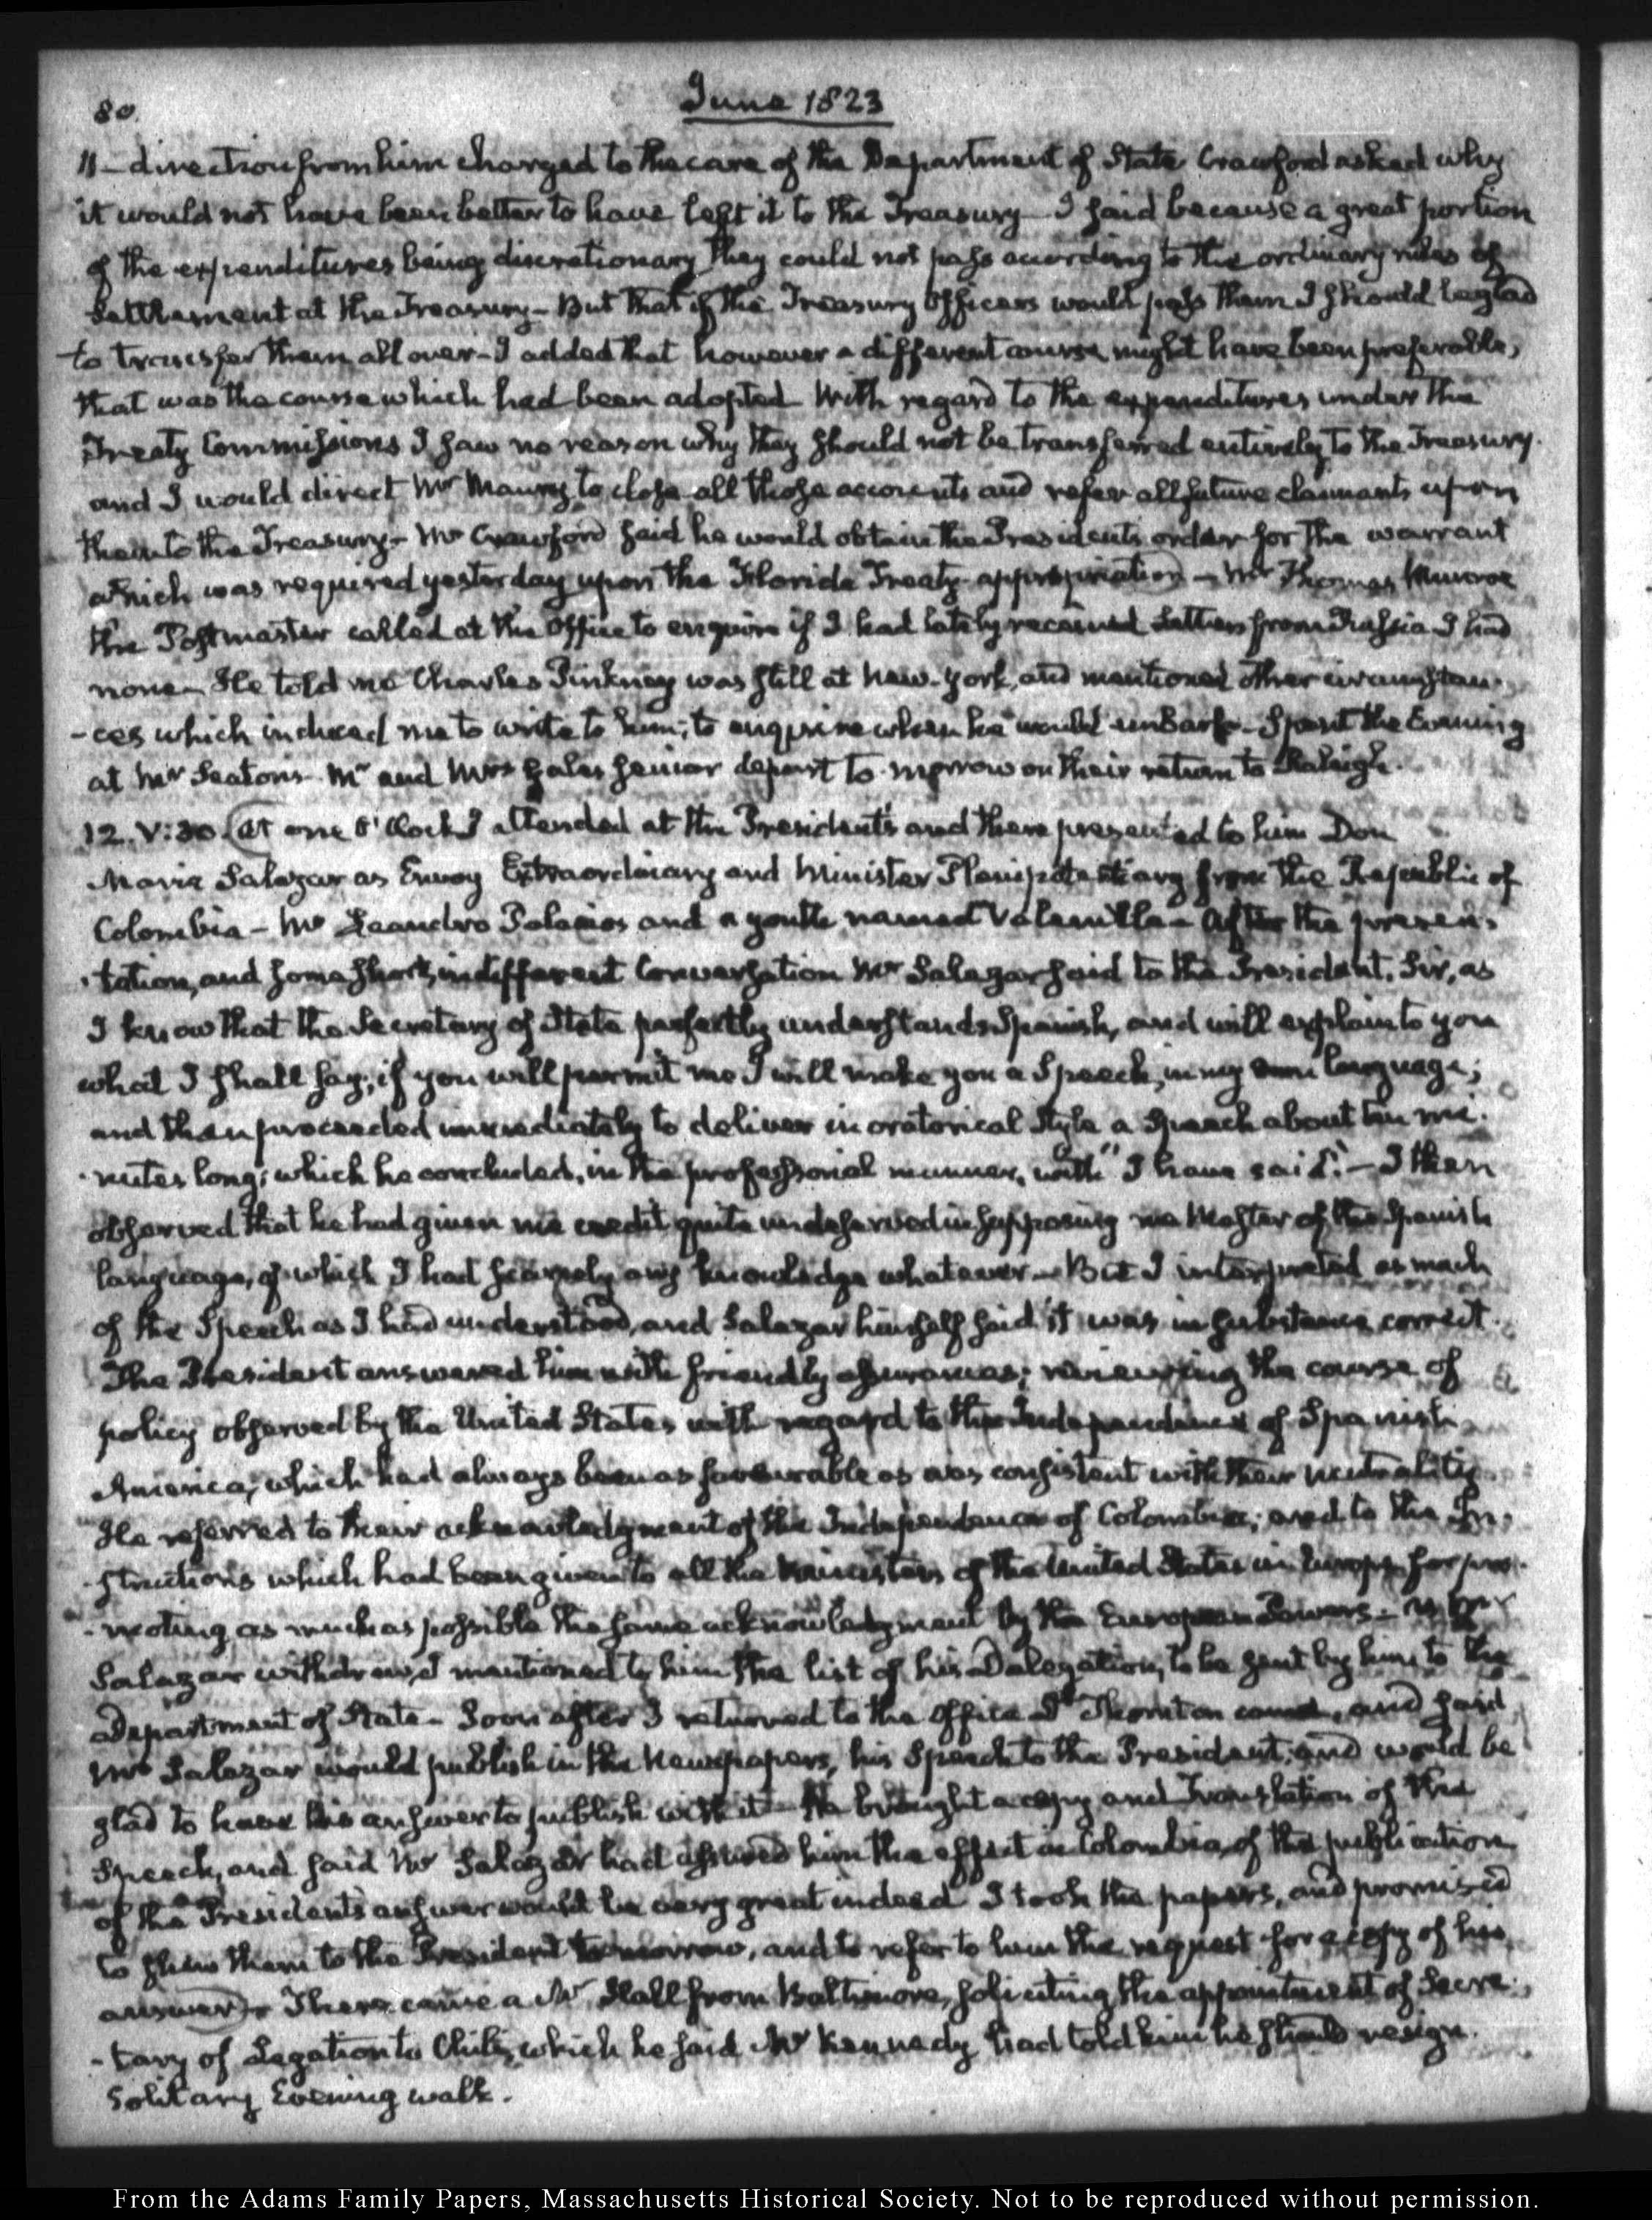 80.
June 1823
11 — direction from him charged to the care of the Department of State. Crawford asked why
it would not have been better to have left it to the Treasury — I said because a great portion
of the expenditures being discretionary they could not pass according to the ordinary rules of
Settlement at the Treasury — But that if the Treasury Officers would pass them I should be glad
to transfer them all over — I added that however a different course might have been preferable,
that was the course which had been adopted. With regard to the expenditures under the
Treaty Commissions I saw no reason why they should not be transferred entirely to the Treasury.
and I would direct Mr. Maury to close all those accounts and refer all future claimants upon
them to the Treasury — Mr Crawford said he would obtain the Presidents order for the warrant
which was required yesterday upon the Florida Treaty appropriation — Mr Thomas Munroe
the Postmaster called at the Office to enquire if I had lately received Letters from Russia I had
none — He told me Charles Pinkney was still at New-York, and mentioned other circumstan-
-ces which induced me to write to him; to enquire when he would embark — Spent the Evening
at Mr Seatons — Mr and Mrs Gales senior depart to-morrow on their return to Raleigh.
12. V:30. (At one O'Clock I attended at the President's and there presented to him Don
Maria Salazar as Envoy Extraordinary and Minister Plenipotentiary from the Republic of
Colombia — Mr Leandro Palacios and a youth named Valenilla — After the presen-
-tation, and some short, indifferent Conversation Mr Salazar said to the President. Sir, as
I know that the Secretary of State perfectly understands Spanish, and will explain to you
what I shall say; if you will permit me I will make you a Speech, in my own language;
and then proceeded immediately to deliver in oratorical Style a Speech about ten mi-
-nutes long; which he concluded, in the professorial manner, with "I have said." — I then
observed that he had given me credit quite undeserved in supposing me Master of the Spanish
language, of which I had scarcely any knowledge whatever — But I interpreted as much
of the Speech as I had understood, and Salazar himself said it was in substance correct.
The President answered him with friendly assurances; reviewing the course of
policy observed by the United States with regard to the Independence of Spanish
America, which had always been as favourable as was consistent with their neutrality.
He referred to their acknowledgment of the Independence of Colombia; and to the In-
-structions which had been given to all the Ministers of the United States in Europe for pro-
-moting as much as possible the same acknowledgment by the European Powers — As Mr
Salazar withdrew, I mentioned to him the list of his Delegation, to be sent by him to the
Department of State — Soon after I returned to the Office Dr Thornton came, and said
Mr Salazar would publish in the Newspapers, his Speech to the President; and would be
glad to have his answer to publish with it — He brought a copy and Translation of the
Speech, and said Mr Salazar had assured him the effect in Colombia, of the publication
of the President's answer would be very great indeed. I took the papers, and promised
to shew them to the President to-morrow, and to refer to him the request for a copy of his
answer) — There came a Mr Hall from Baltimore, soliciting the appointment of Secre-
-tary of Legation to Chili, which he said Mr Kennedy had told him he should resign.
Solitary Evening walk.
From the Adams Family Papers, Massachusetts Historical Society. Not to be reproduced without permission.